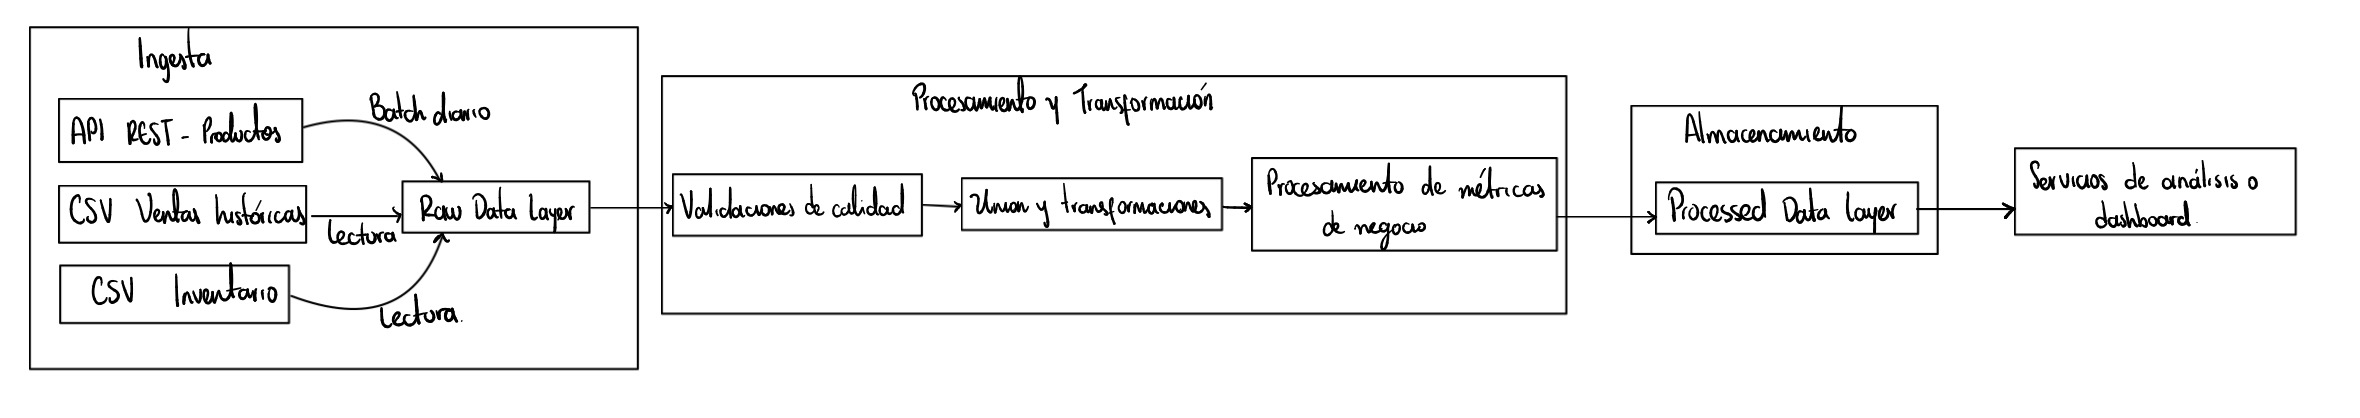 Ingesta
API REST - Productos
Batch diario
CSV Ventas históricas
Lectura
Raw Data Layer
CSV Inventario
Lectura.
Procesamiento y Transformación
Validaciones de calidad
Union y transformaciones
Procesamiento de métricas
de negocio
Almacenamiento
Processed Data Layer
Servicios de análisis o
dashboard.